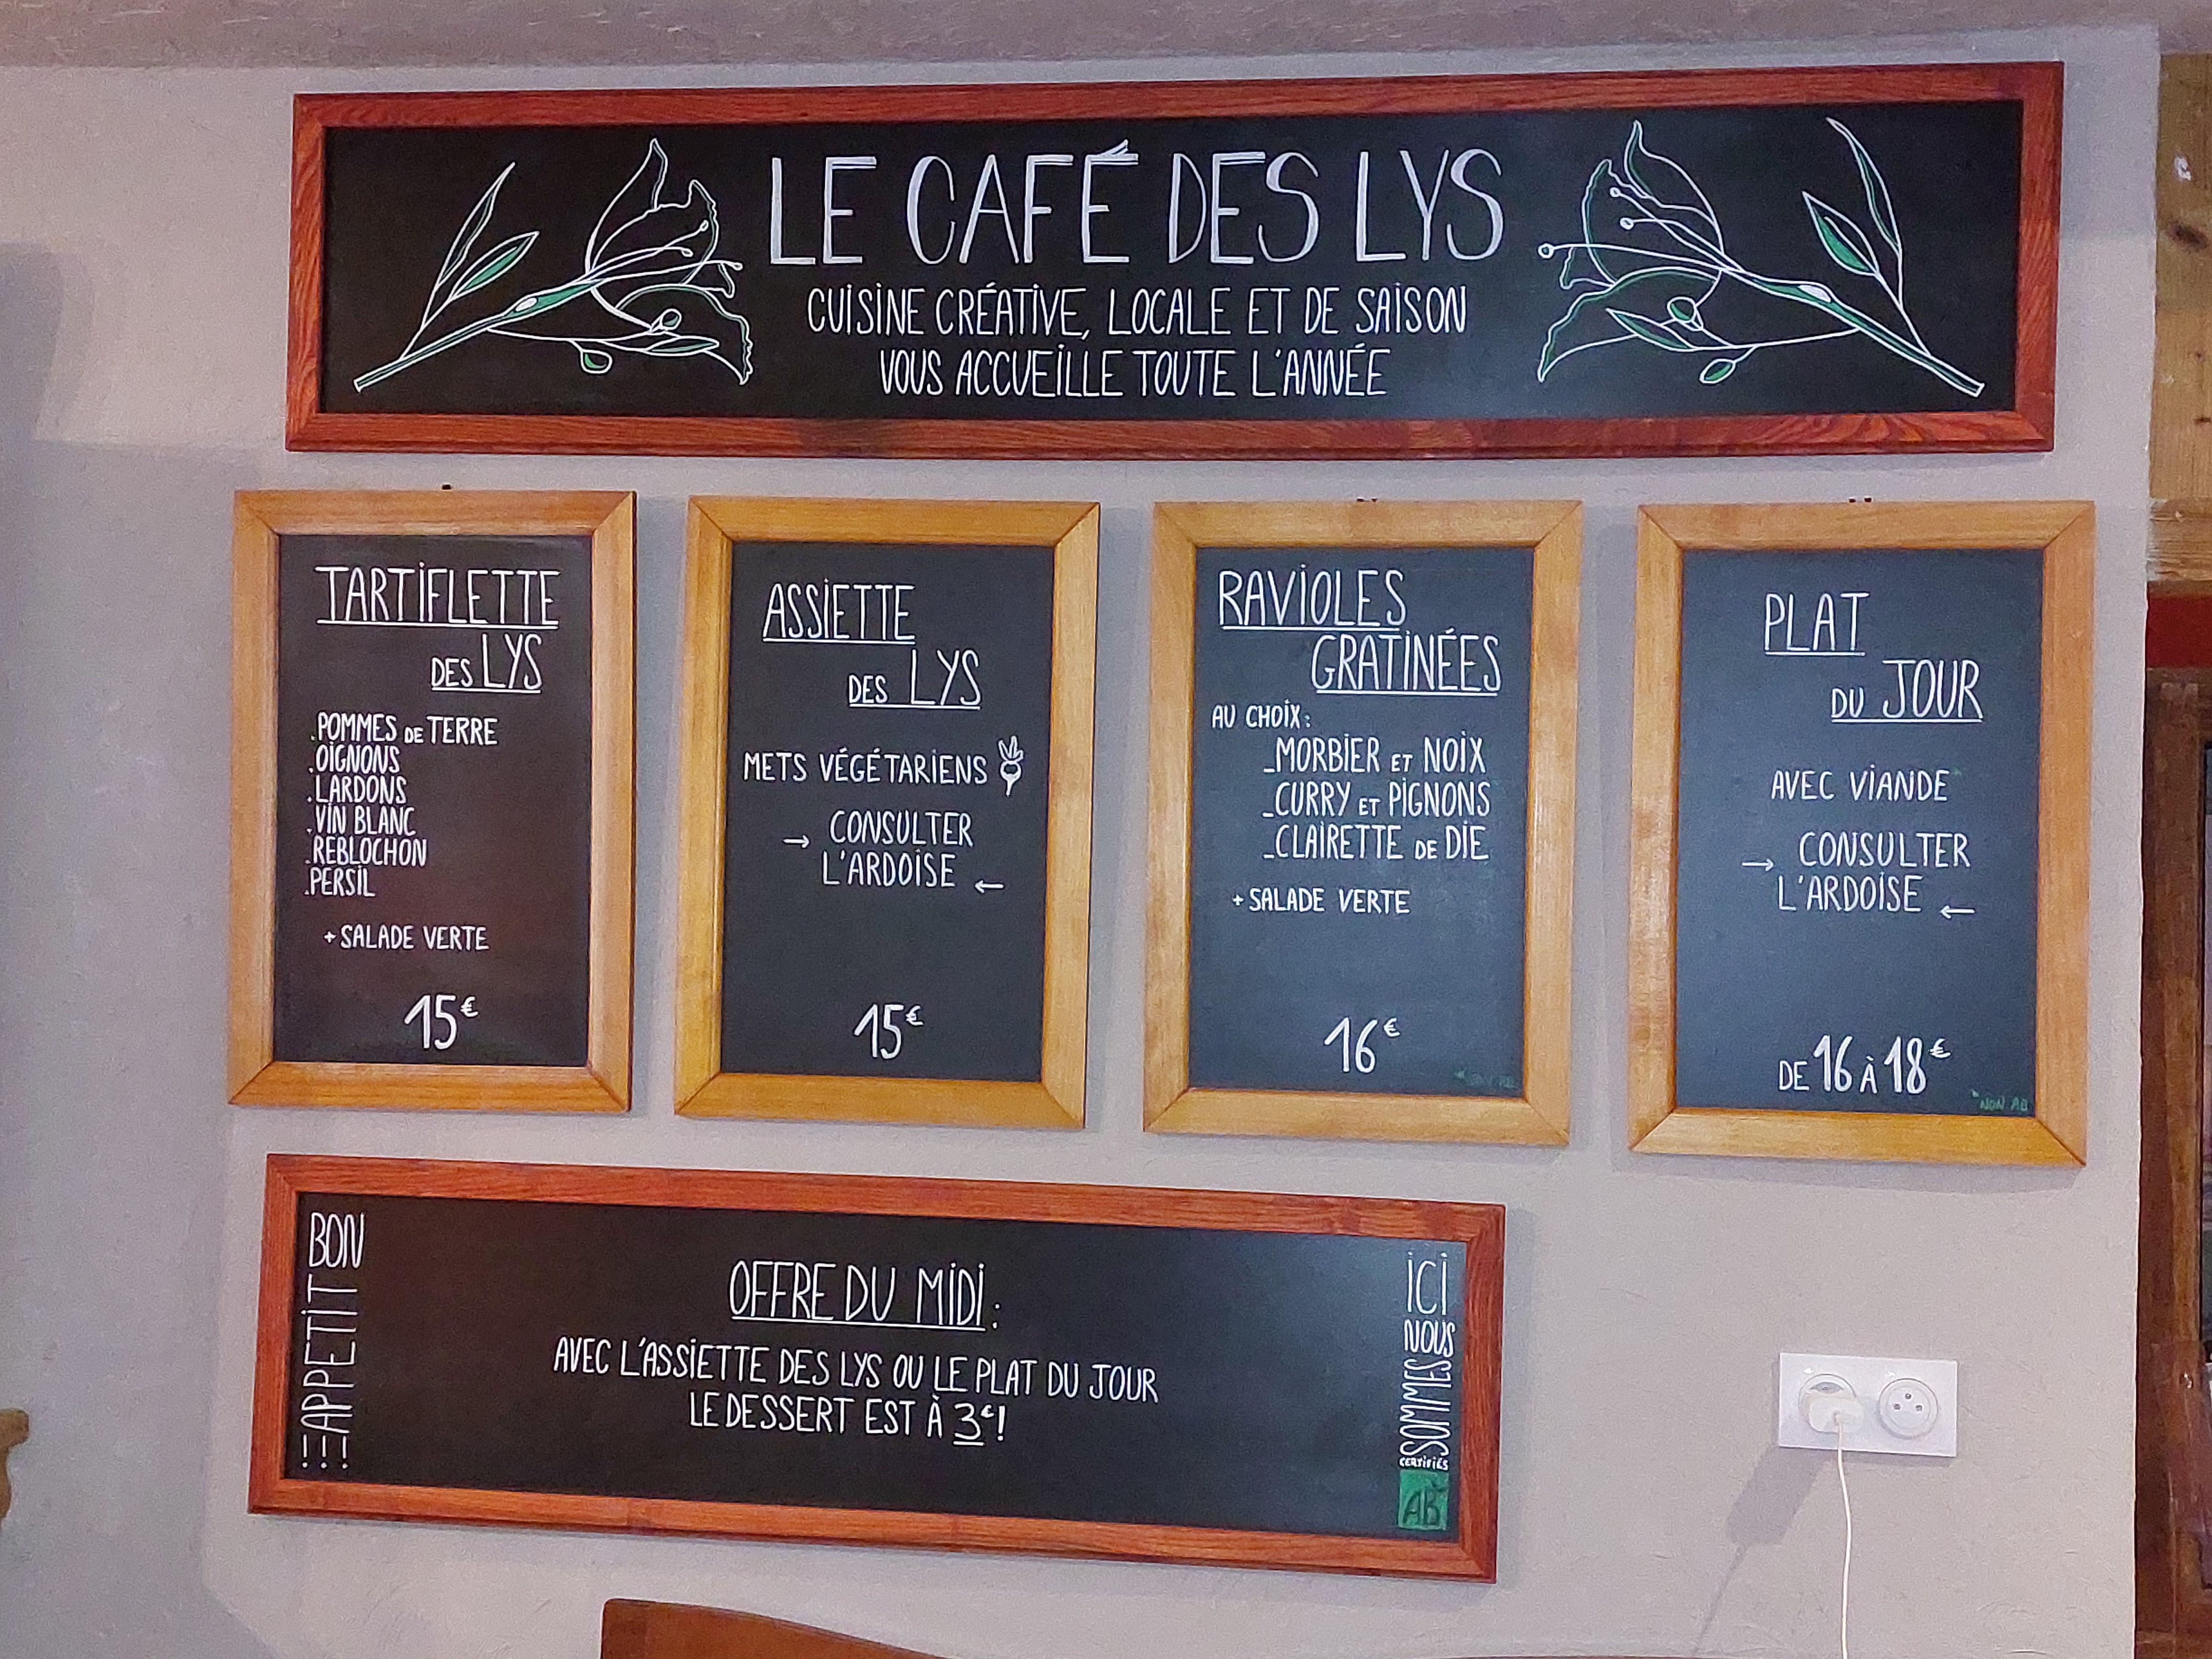 LE CAFÉ DES LYS
CUISINE CRÉATIVE, LOCALE ET DE SAISON
VOUS ACCUEILLE TOUTE L'ANNÉE
TARTIFLETTE
DES LYS
.POMMES DE TERRE
.OIGNONS
.LARDONS
.VIN BLANC
.REBLOCHON
.PERSIL
+ SALADE VERTE
15€
ASSIETTE
DES LYS
METS VÉGÉTARIENS
→ CONSULTER
L'ARDOISE ←
15€
RAVIOLES
GRATINÉES
AU CHOIX:
_MORBIER ET NOIX
_CURRY ET PIGNONS
_CLAIRETTE DE DIE
+ SALADE VERTE
16€
*NON AB
PLAT
DU JOUR
AVEC VIANDE*
→ CONSULTER
L'ARDOISE ←
DE 16 À 18€
*NON AB
BON
APPETIT
!!!
OFFRE DU MIDI:
AVEC L'ASSIETTE DES LYS OU LE PLAT DU JOUR
LE DESSERT EST À 3€!
ICI
NOUS
SOMMES
CERTIFIÉS
AB